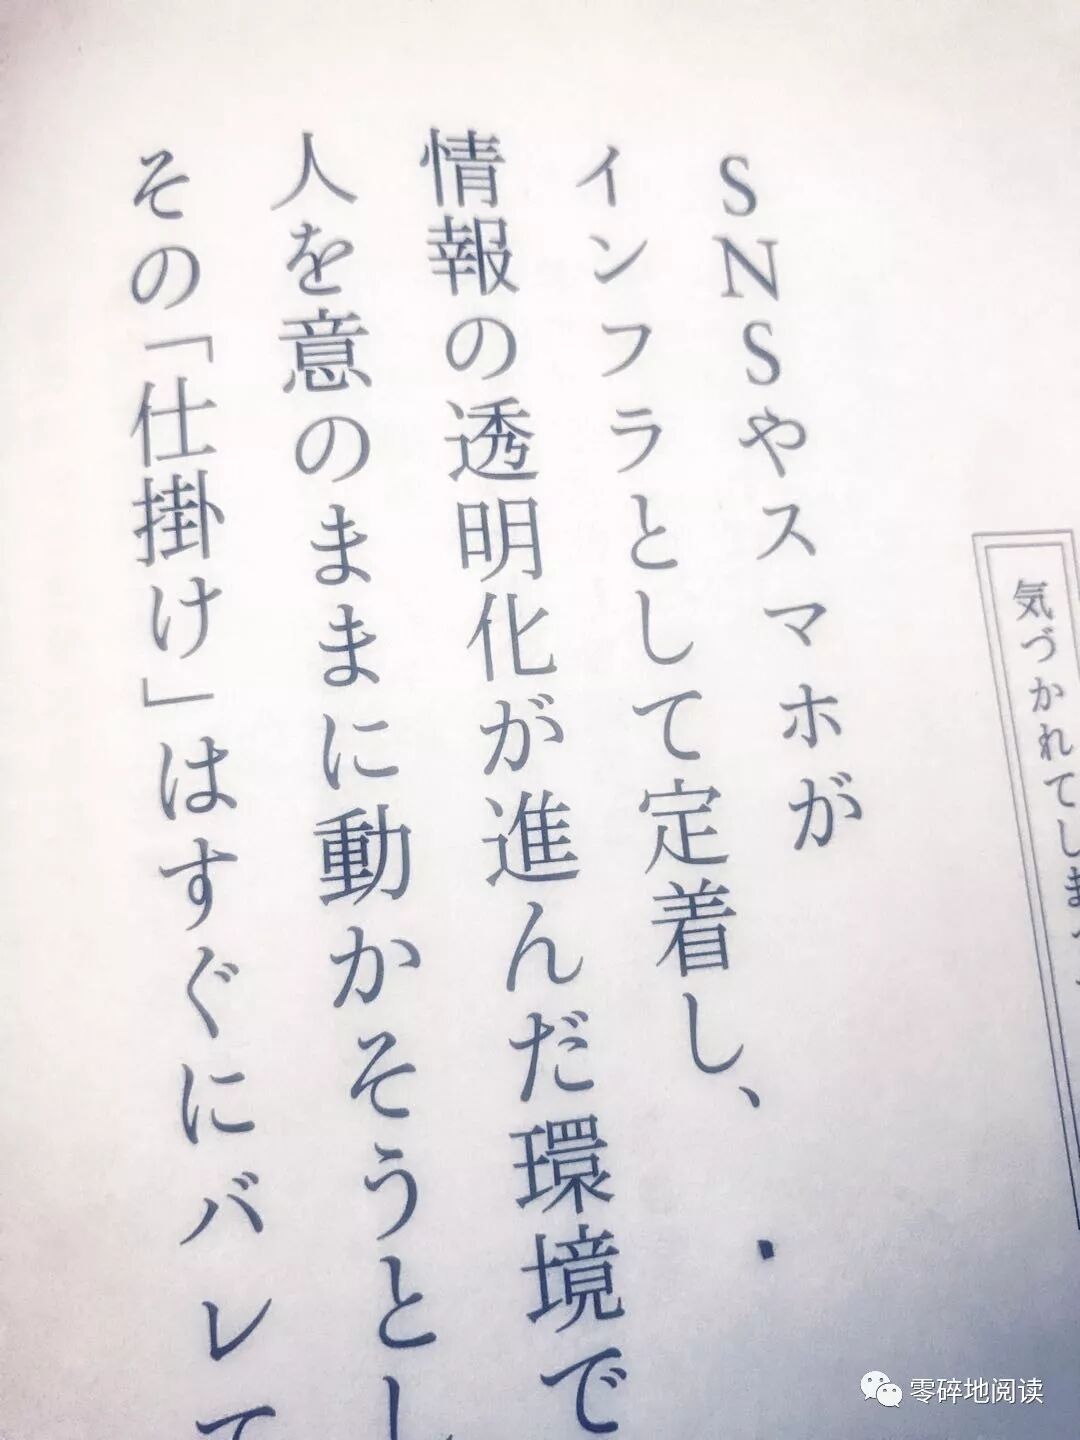 気づかれてしま
SNSやスマホが
インフラとして定着し、
情報の透明化が進んだ環境で
人を意のままに動かそうとし
その「仕掛け」はすぐにバレて
零碎地阅读